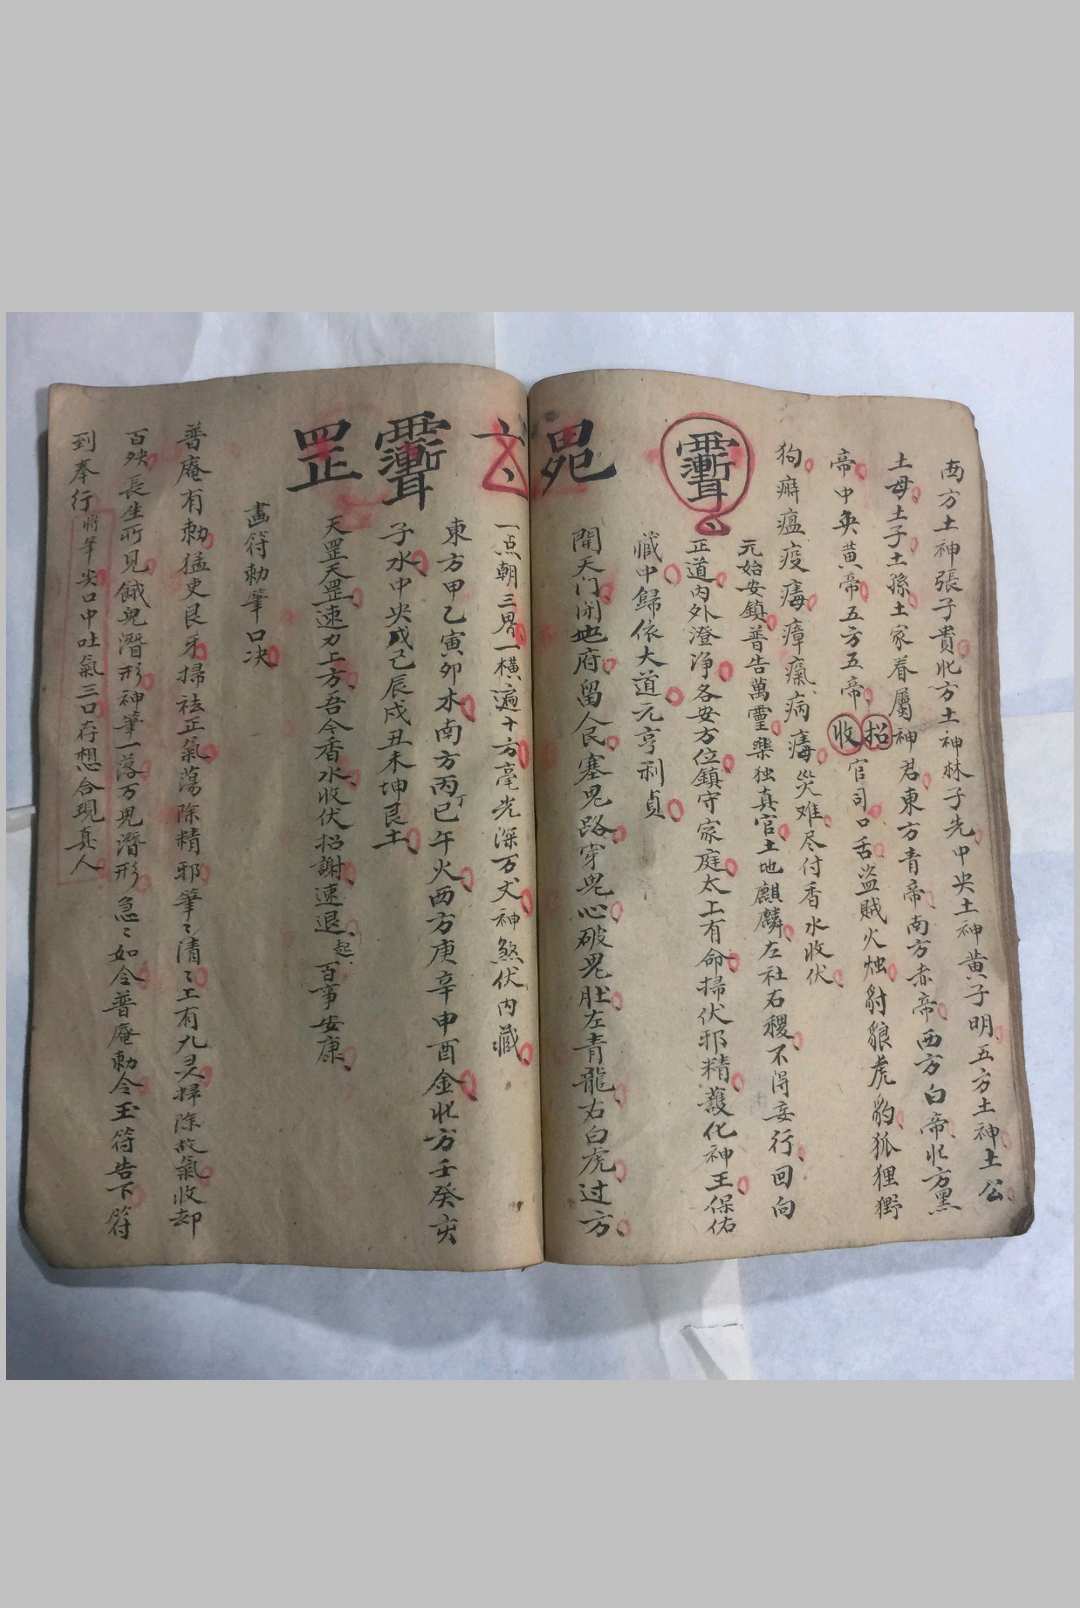 西方土神張子貴北方土神林子先中央土神黃子明五方土神土公
土母土子土孫土家眷屬神君東方青帝南方赤帝西方白帝北方黑
帝中央黃帝五方五帝招收官司口舌盜賊火燭豺狼虎豹狐狸野
狗癖瘟疫毒瘴氣病毒災难尽付香水收伏
元始安鎮普告萬靈樂独真官土地麒麟左社右稷不得妄行回向
正道內外澄净各安方位鎮守家庭太上有命掃伏邪精護化神王保佑
臧中歸依大道元亨利貞
開天门闭地府留人民塞鬼路穿鬼心破鬼肚左青龍右白虎过方
一点朝三界一橫遍十方毫光深万丈神煞伏内藏
東方甲乙寅卯木南方丙丁巳午火西方庚辛申酉金北方壬癸亥
子水中央戊己辰戌丑未坤艮土
天罡天罡速力上方吾今香水收伏招謝速退起百事安康
罡
畫符勅筆口决
普庵有勅猛吏艮牙掃祛正氣蕩除精邪筆〻清〻上有九灵掃除故氣收却
百殃長生所見餓鬼潛形神筆一落万鬼潛形急〻如令普庵勅令玉符告下符
到奉行將筆尖口中吐氣三口存想合現真人